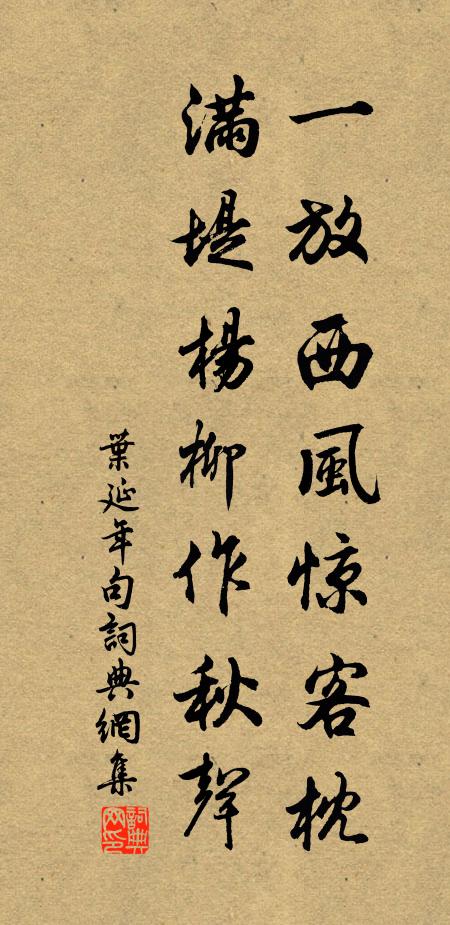 一放西風惊客枕
滿堤楊柳作秋聲
葉延年句詞典網集
詞典网印